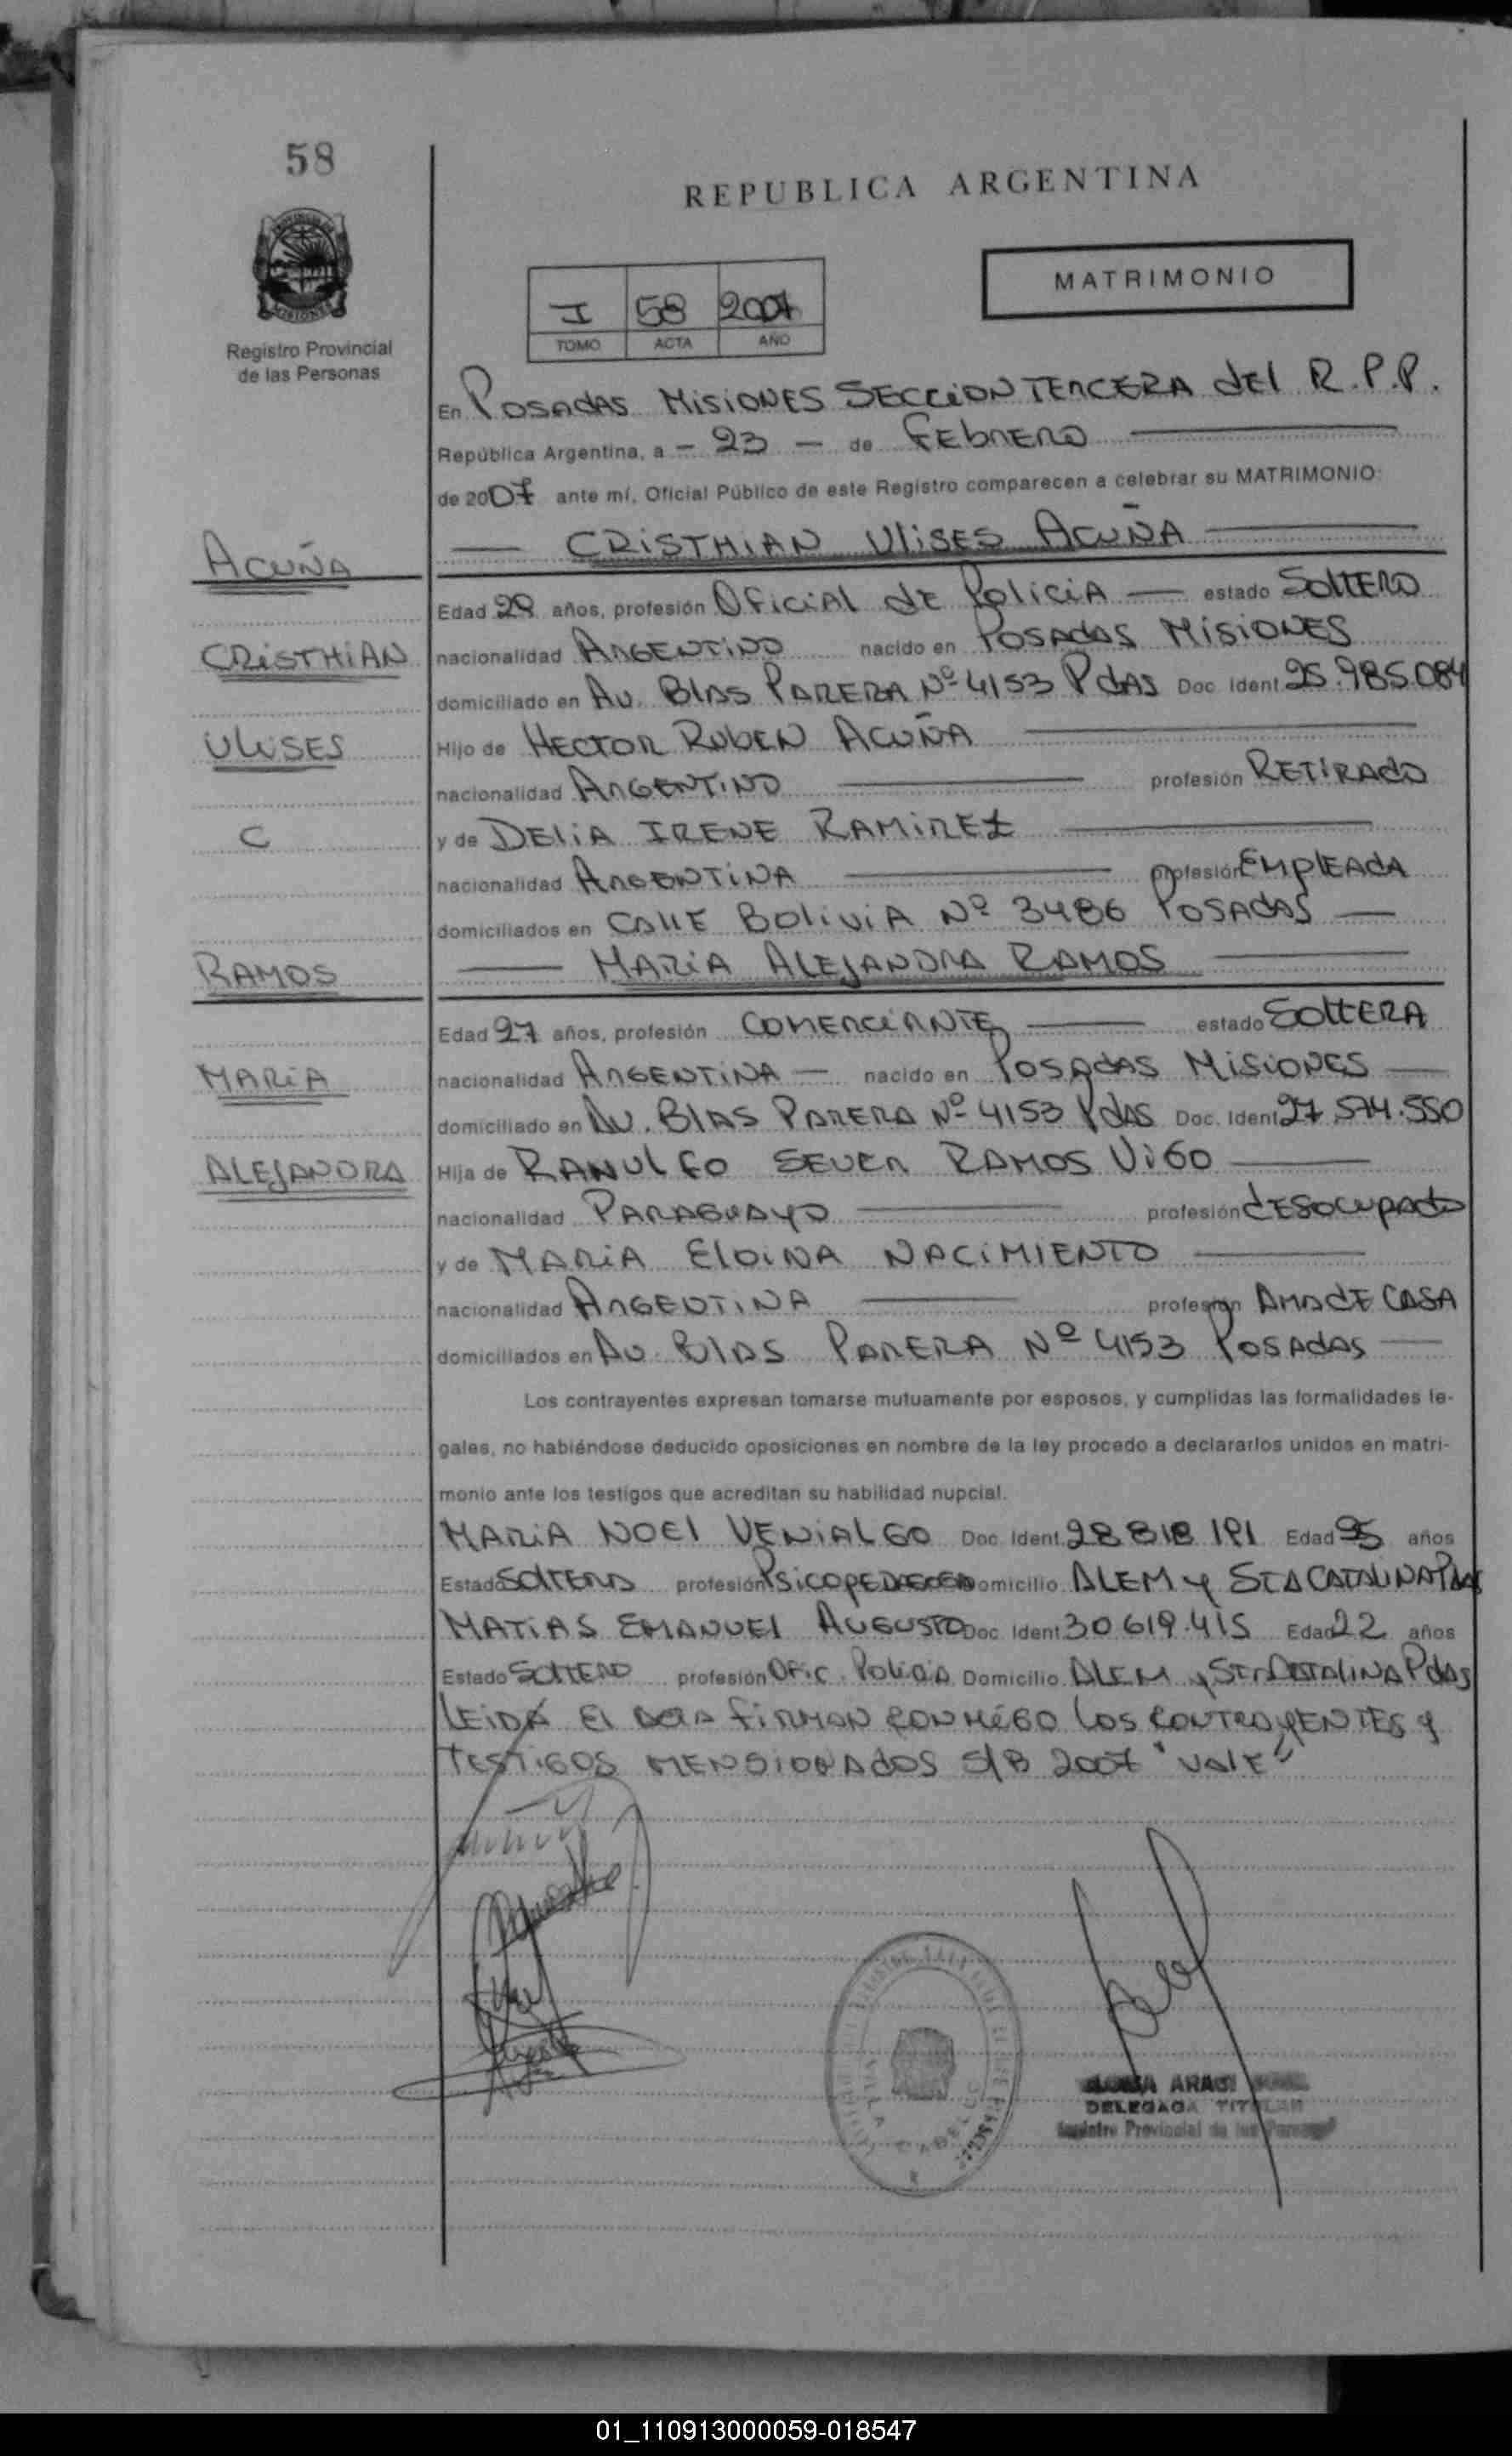 58
REPUBLICA ARGENTINA
MATRIMONIO
I 58 2007
TOMO ACTA AÑO
Registro Provincial
de las Personas
En POSADAS MISIONES SECCION TERCERA DEL R.P.P.
República Argentina, a - 23 - de FEBRERO
de 2007 ante mí, Oficial Público de este Registro comparecen a celebrar su MATRIMONIO:
ACUÑA
CRISTHIAN ULISES ACUÑA
Edad 29 años, profesión OFICIAL DE POLICIA estado SOLTERO
CRISTHIAN
nacionalidad ARGENTINO nacido en POSADAS MISIONES
domiciliado en AV. BLAS PARERA Nº 4153 PDAS Doc. Ident. 25.985.084
ULISES
Hijo de HECTOR RUBEN ACUÑA
nacionalidad ARGENTINO profesión RETIRADO
C
y de DELIA IRENE RAMIREZ
nacionalidad ARGENTINA profesión EMPLEADA
domiciliados en CALLE BOLIVIA Nº 3486 POSADAS
RAMOS
MARIA ALEJANDRA RAMOS
Edad 27 años, profesión COMERCIANTE estado SOLTERA
MARIA
nacionalidad ARGENTINA nacido en POSADAS MISIONES
domiciliado en AV. BLAS PARERA Nº 4153 PDAS Doc. Ident. 27.574.550
ALEJANDRA
Hija de RANULFO SEVER RAMOS VIGO
nacionalidad PARAGUAYO profesión DESOCUPADO
y de MARIA ELOINA NACIMIENTO
nacionalidad ARGENTINA profesión AMA DE CASA
domiciliados en AV. BLAS PARERA Nº 4153 POSADAS
Los contrayentes expresan tomarse mutuamente por esposos, y cumplidas las formalidades le-
gales, no habiéndose deducido oposiciones en nombre de la ley procedo a declararlos unidos en matri-
monio ante los testigos que acreditan su habilidad nupcial.
MARIA NOEL VENIALGO Doc. Ident. 28 818 191 Edad 25 años
Estado SOLTERA profesión PSICOPEDAGOGA Domicilio ALEM y STA CATALINA PDAS
MATIAS EMANUEL AUGUSTO Doc. Ident. 30 619.415 Edad 22 años
Estado SOLTERO profesión OFIC. POLICIA Domicilio ALEM y STA CATALINA PDAS
LEIDA EL ACTA FIRMAN CONMIGO LOS CONTRAYENTES y
TESTIGOS MENSIONADOS S/B 2007 "VALE"
DELEGADA TITULAR
Registro Provincial de las Personas
01_110913000059-018547